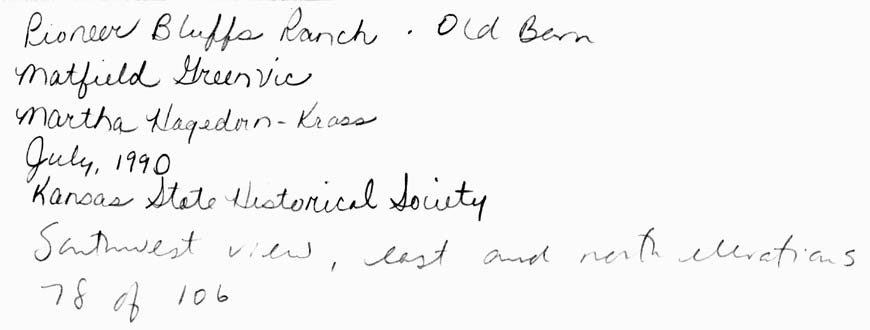 Pioneer Bluffs Ranch . Old Barn
Matfield Green vic
Martha Hagedorn-Krass
July, 1990
Kansas State Historical Society
Southwest view, east and north elevations
78 of 106